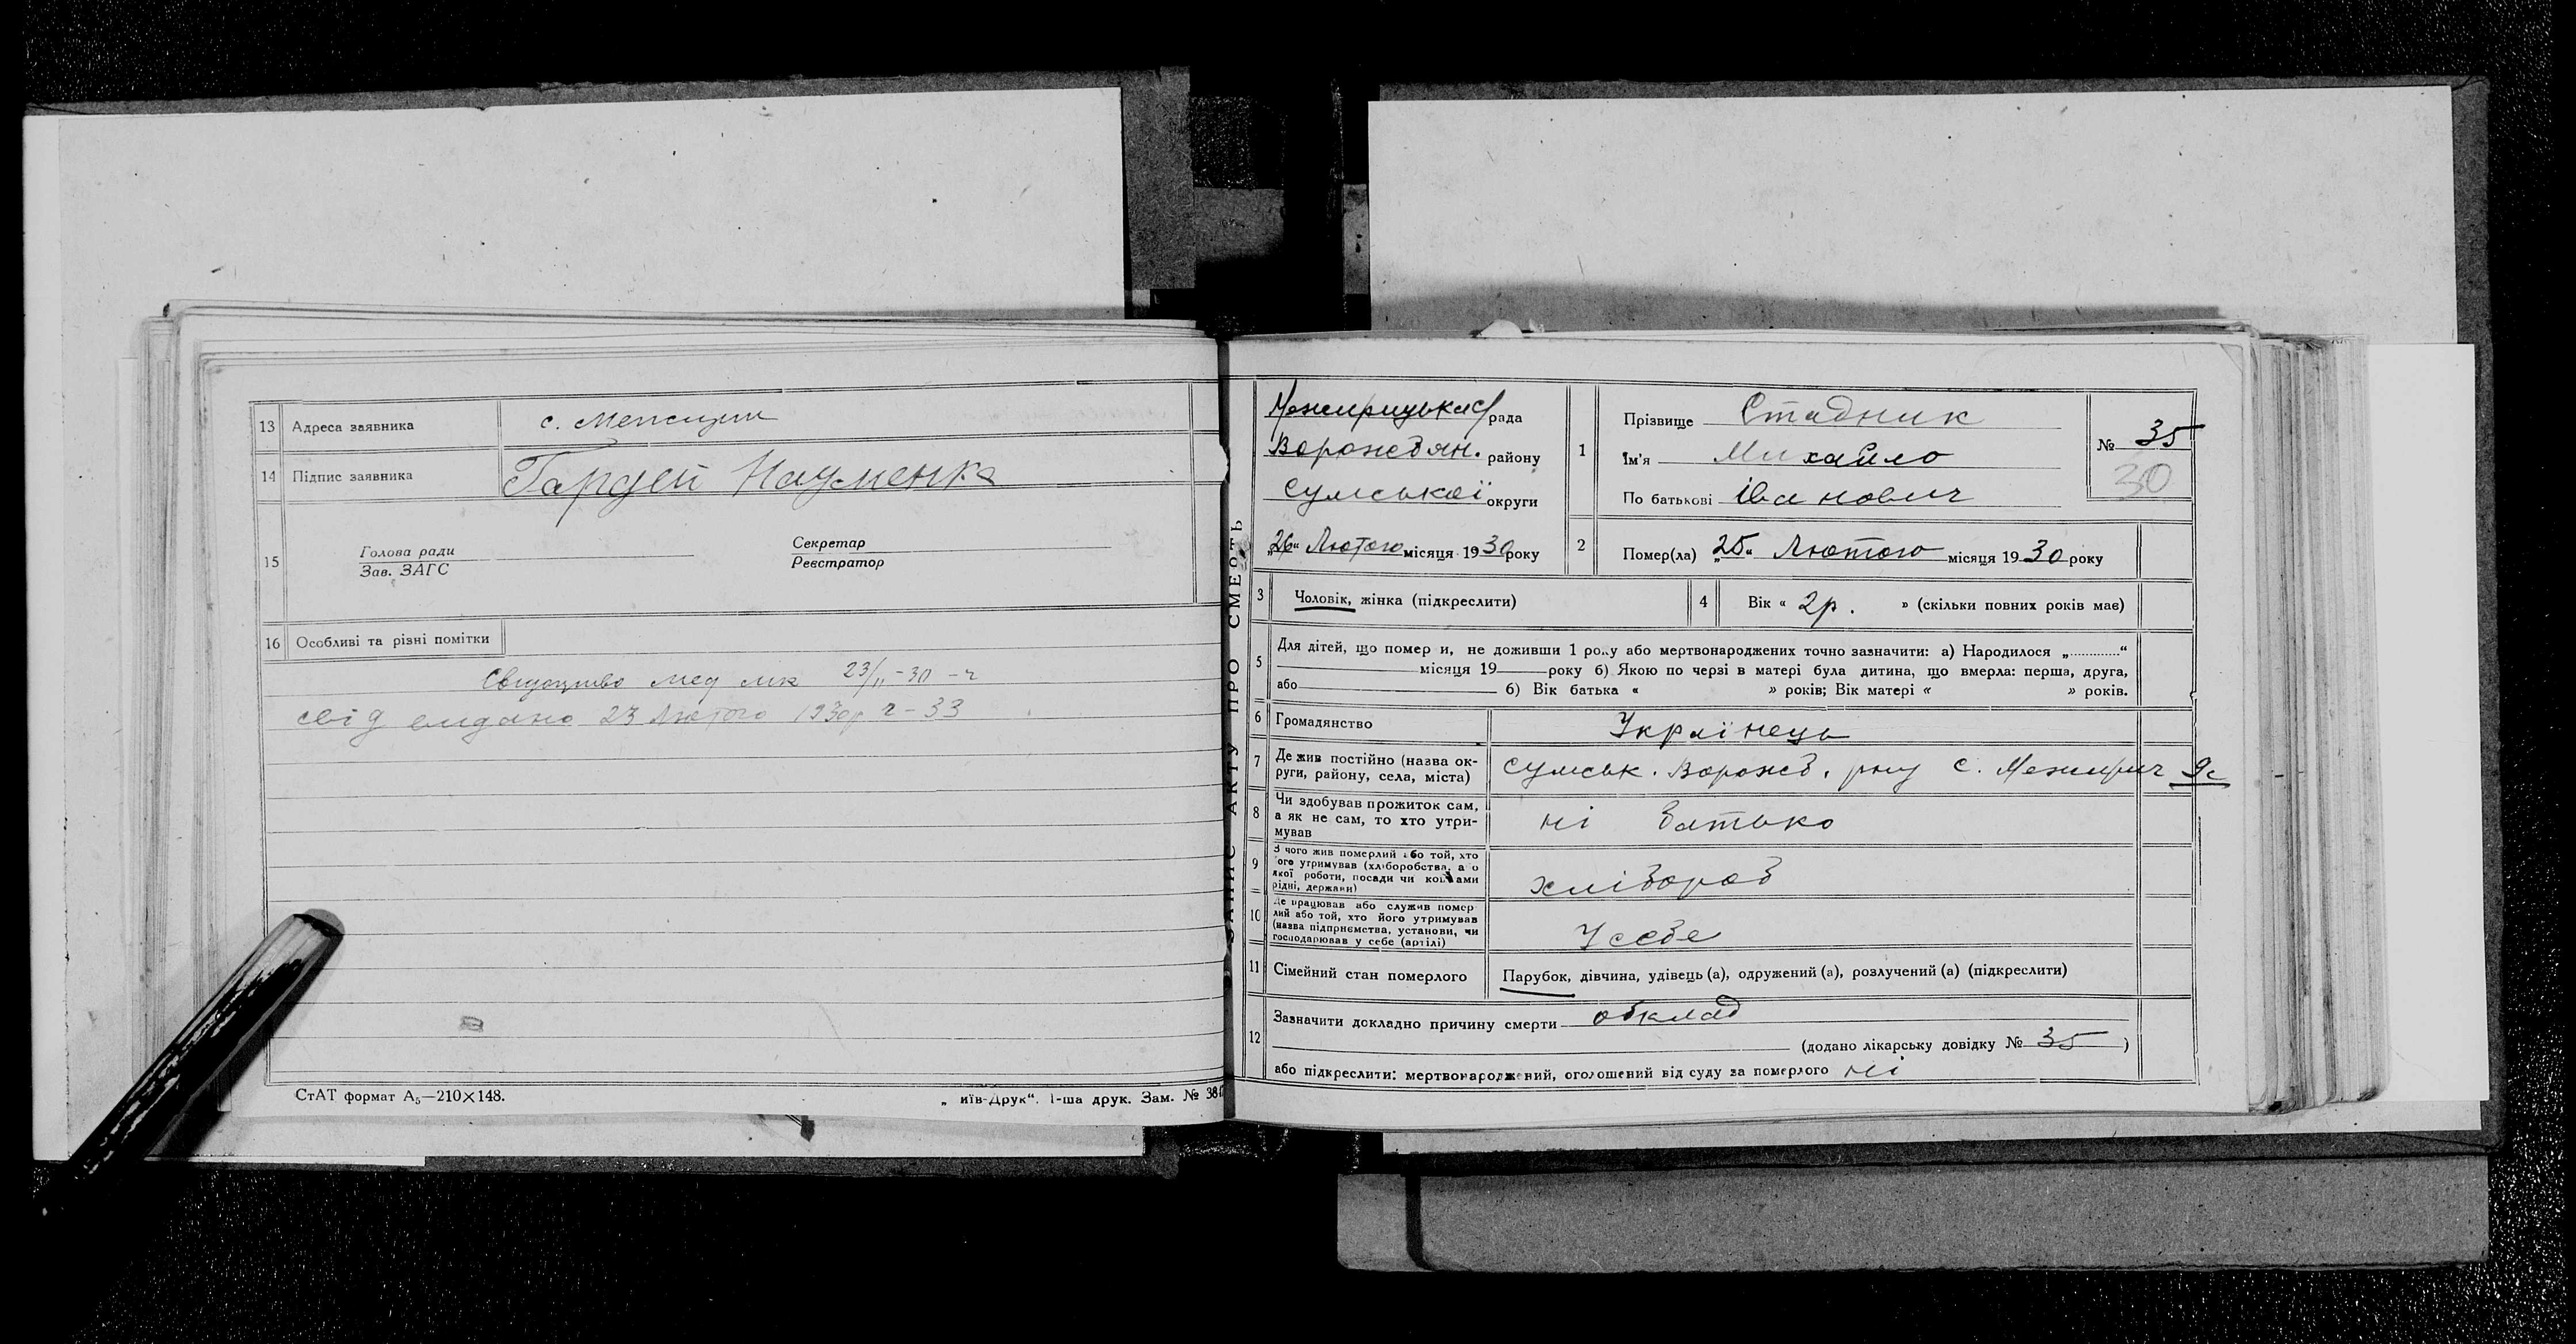 13 Адреса заявника с.
14 Підпис заявника Гардей Науменка
15 Голова ради
Зав. ЗАГС
Секретар
Реєстратор
16 Особливі та різні помітки
23/II-30-
свід видано 23 Лютого 1930р ч-33
СтАТ формат А₅—210×148.
„ иїв-Друк“. 1-ша друк. Зам. № 38
ЗАПИС АКТУ ПРО СМЕРТЬ
Межирицька с/рада
Ворожбян. району
Сумської округи
„26“ Лютого місяця 1930 року
1 Прізвище Стадник
Ім'я Михайло
По батькові Іванович
№ 35
30
2 Помер(ла) „25“ Лютого місяця 1930 року
3 Чоловік, жінка (підкреслити)
4 Вік « 2р. » (скільки повних років має)
5 Для дітей, що помер и, не доживши 1 року або мертвонароджених точно зазначити: а) Народилося „............“
місяця 19 року б) Якою по черзі в матері була дитина, що вмерла: перша, друга,
або б) Вік батька « » років; Вік матері « » років.
6 Громадянство Українець
7 Де жив постійно (назва ок-
руги, району, села, міста) Сумськ. Ворожб. рну с. Межирич 9с
8 Чи здобував прожиток сам,
а як не сам, то хто утри-
мував ні батько
9 З чого жив померлий або той, хто
ого утримував (хліборобства, а о
якої роботи, посади чи коштами
рідні, держави) хлібороб
10 Де працював або служив помер
лий або той, хто його утримував
(назва підприємства, установи, чи
господарював у себе (артілі) У себе
11 Сімейний стан померлого Парубок, дівчина, удівець (а), одружений (а), розлучений (а) (підкреслити)
12 Зазначити докладно причину смерти обклад
(додано лікарську довідку № 35 )
або підкреслити: мертвонароджений, оголошений від суду за померлого ні